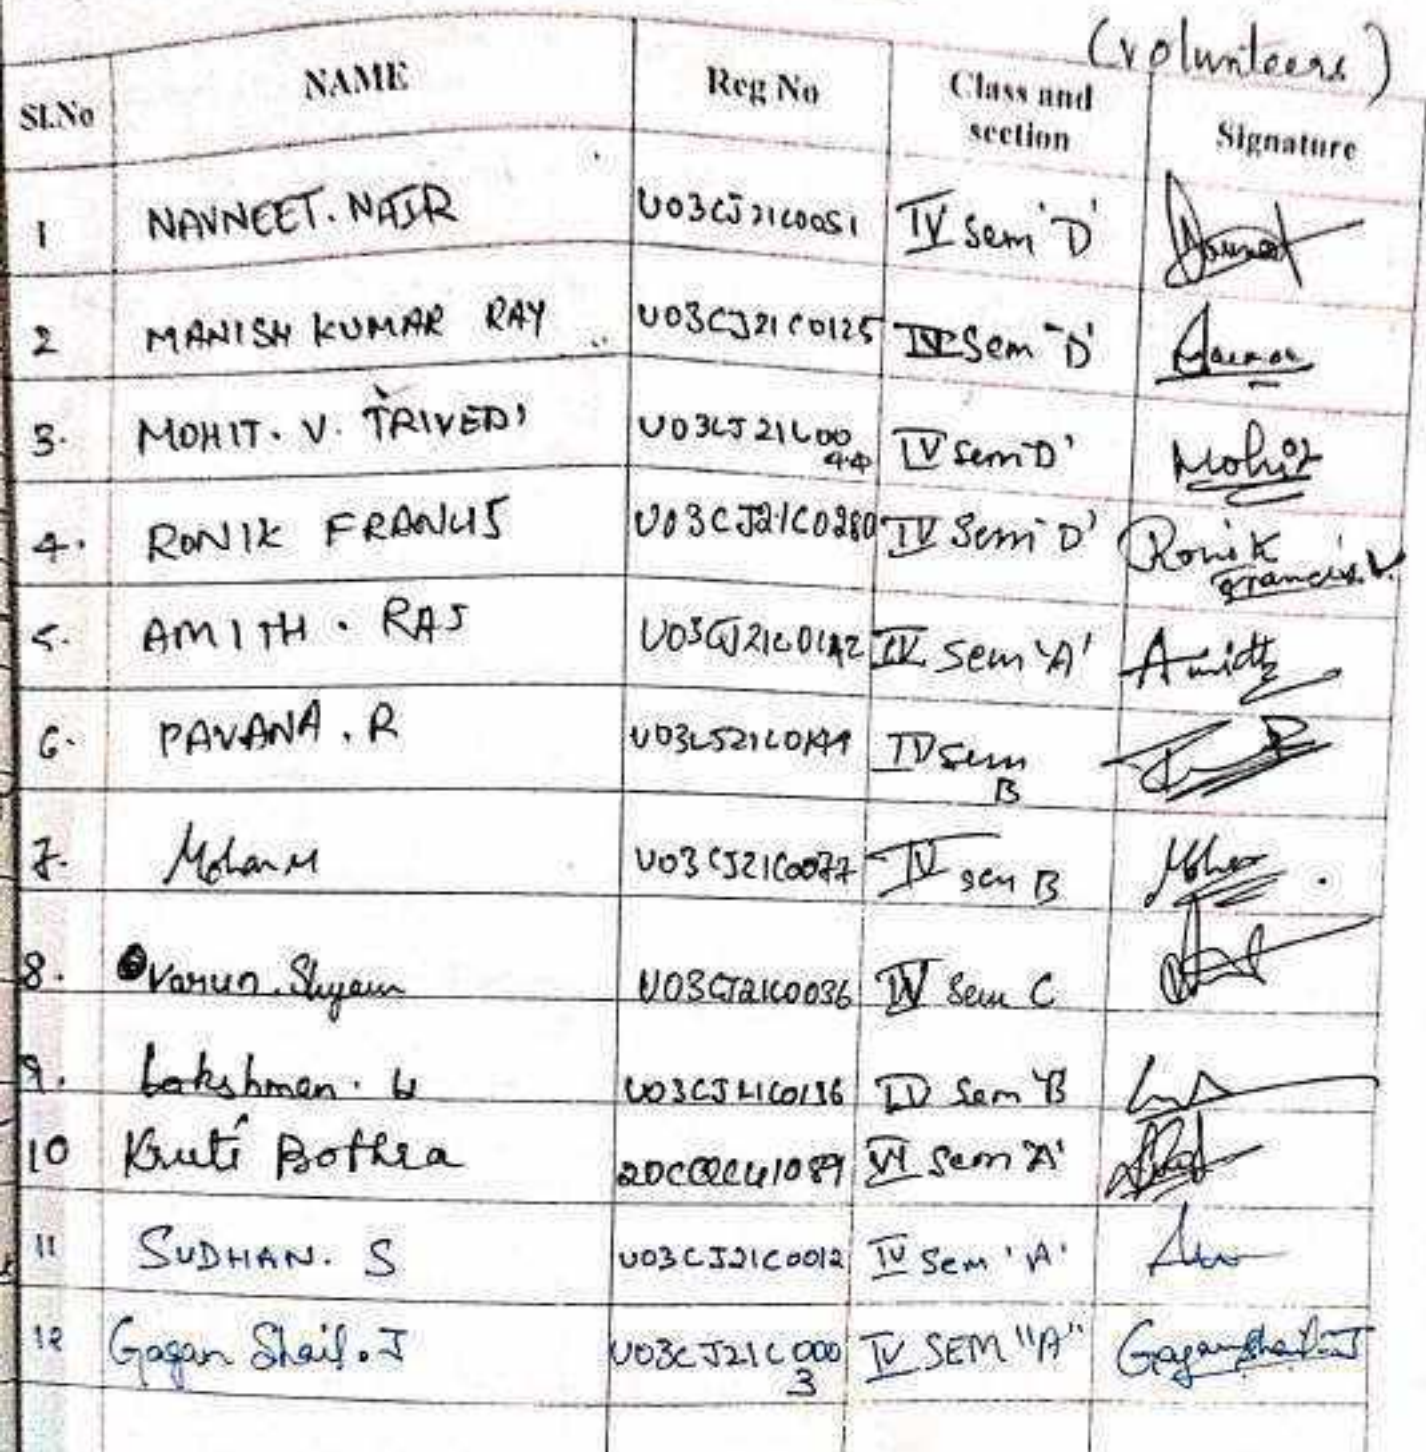 (volunteers)
Sl.No NAME Reg No Class and section Signature
1 NAVNEET. NAIR U03CJ21C0051 IV Sem 'D'
2 MANISH KUMAR RAY U03CJ21C0125 IV Sem 'D'
3. MOHIT. V. TRIVEDI U03CJ21C0044 IV Sem 'D' Mohit
4. RONIK FRANCIS U03CJ21C0280 IV Sem 'D' Ronik Francis.V.
5. AMITH. RAJ IV Sem 'A' Amith
6. PAVANA. R IV Sem B
7. Mohan M U03CJ21C0077 IV sem B
8. Varun. Shyam U03CJ21C0036 IV Sem C
9. Lakshman. U03CJ21C0136 IV Sem 'B'
10 Kruti Bothra VI Sem 'A'
11 SUDHAN. S U03CJ21C0012 IV Sem 'A'
12 Gagan Shail. J U03CJ21C0003 IV SEM "A" Gagan Shail J